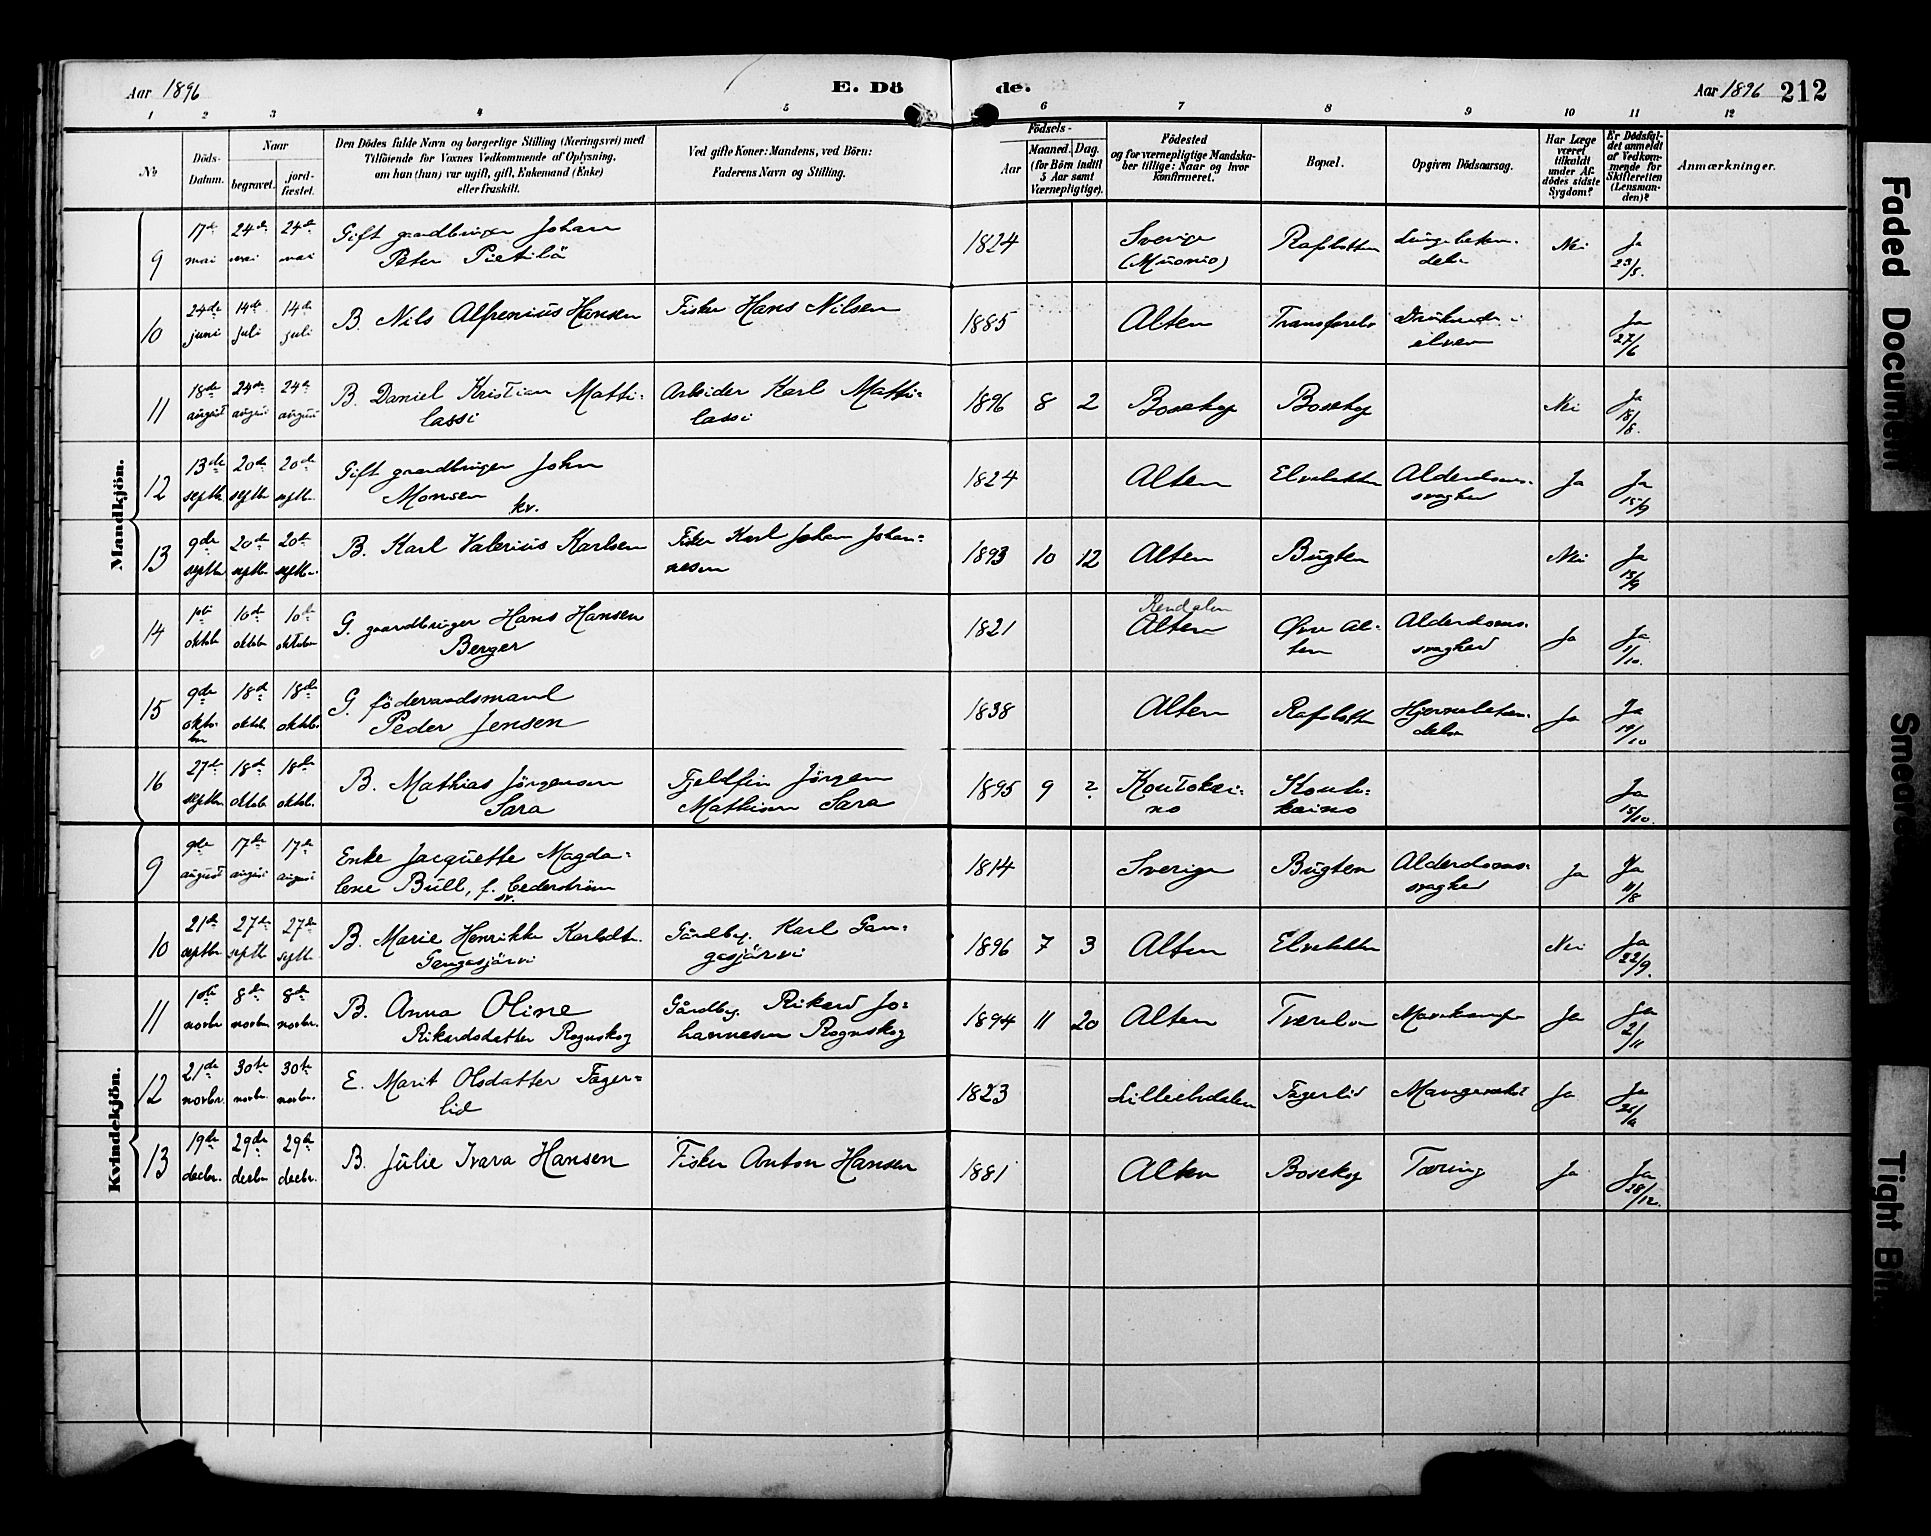 Aar 1896
E. Dö
de.
Aar 1896
212
1 2 3 4 5 6 7 8 9 10 11 12
No
Döds-
Datum.
Naar
begravet.
jord-
fæstet.
Den Dödes fulde Navn og borgerlige Stilling (Næringsvei) med
Tilföiende for Voxnes Vedkommende af Oplysning,
om han (hun) var ugift, gift, Enkemand (Enke)
eller fraskilt.
Ved gifte Koner: Mandens, ved Börn:
Faderens Navn og Stilling.
Födsels-
Aar
Maaned. Dag.
(for Börn indtil
5 Aar samt
Værnepligtige).
Födested
og for værnepligtige Mandska-
ber tillige: Naar og hvor
konfirmeret.
Bopæl.
Opgiven Dödsaarsag.
Har Læge
været
tilkaldt
under Af-
dödes sidste
Sygdom?
Er Dödsfal-
det anmeldt
af Vedkom-
mende for
Skifteretten
(Lensman-
den)?
Anmærkninger.
Mandkjön.
9 17de mai 24de mai 24de mai Gift gaardbruger Johan
Peter Pietilä
1824 Sverige
(Muonio)
Rafsbotten Lungebetæn-
delse
Nei Ja 23/5.
10 24de juni 14de juli 14de juli B. Nils Alfrenius Hansen Fisker Hans Nilsen 1885 Alten Transfarelv
elven Ja 27/6
11 18de august 24de august 24de august B. Daniel Kristian Matti-
lassi
Arbeider Karl Matti-
lassi
1896 8 2 Bosekop Bosekop Nei Ja 18/8.
12 13de septbr 20de septbr 20de septbr. Gift gaardbruger John
Monsen
kv.
1824 Alten Elvebakken Alderdoms-
svaghed
Ja Ja 15/9
13 9de septbr 20de septbr 20de septbr. B. Karl Valerius Karlsen Fisker Karl Johan Johan-
nesen
1893 10 12 Alten Bugten Nei Ja 13/9
14 1ste oktob. 10de oktober 10de oktober G. gaardbruger Hans Hansen
Berger
1821 Rendalen
Alten
Øvre Al-
ten
Alderdoms-
svaghed
Ja Ja /10.
15 9de okto-
ber
18de oktob. 18de oktob. G. föderaadsmand
Peder Jensen
1838 Alten Rafsbotten Hjernebetæn-
delse
Ja Ja /10
16 27de septbr. 18de oktob. 18de oktob. B. Mathias Jörgensen
Sara
Fjeldfin Jörgen
Mathisen Sara
1895 9 ? Koutokei-
no
Kouto-
kæino
Ja 15/10.
Kvindekjön.
9 9de august 17de august 17de august Enke Jacquette Magda-
lene Bull, f. Cederström
sv.
1814 Sverige Bugten Alderdoms-
svaghed
Ja Ja 11/8
10 21de septbr 27de septb 27de septb. B. Marie Henrikke Karlsdtr.
Gangasjärvi
Gårdbr. Karl Gan-
gasjärvi
1896 7 3 Alten Elvebakken Nei Ja 22/9.
11 1ste novbr 8de novbr 8de novbr. B. Anna Oline
Rikardsdatter Rognskog
Gårdbr. Rikard Jo-
hannesen Rognskog
1894 11 20 Alten Tverelven Mavekrampe Ja Ja 2/11
12 21de novbr. 30te novbr. 30te novbr. E. Marit Olsdatter Fager-
lid
1823 Lilleelvdalen Fagerlid Ja Ja
13 19de decbr. 29de decbr 29de decbr. B. Julie Ivara Hansen Fisker Anton Hansen 1881 Alten Bosekop Tæring Ja Ja 28/12.
Faded Document
Smeared
Tight Bi